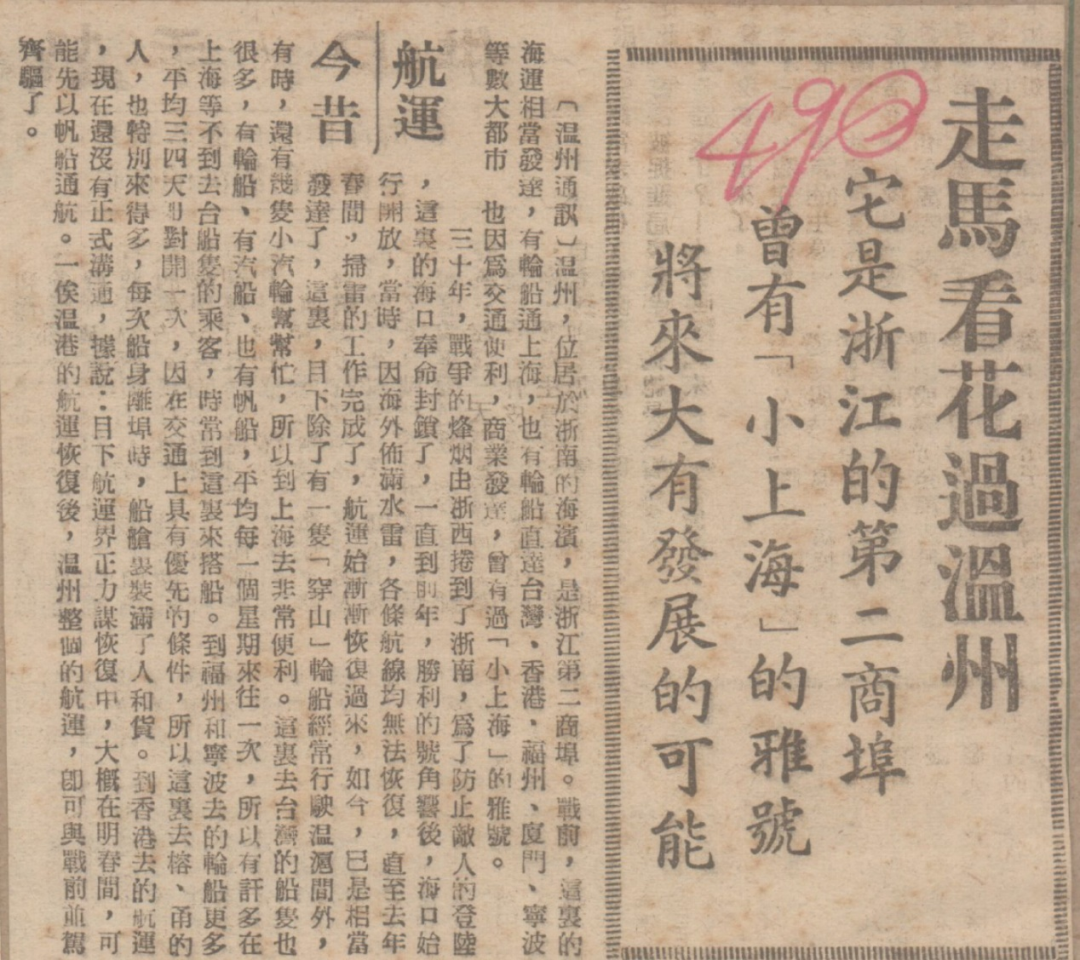 走馬看花過溫州
它是浙江的第二商埠
曾有「小上海」的雅號
將來大有發展的可能
490
〔温州通訊〕温州，位居於浙南的海濱，是浙江第二商埠。戰前，這裏的
海運相當發達，有輪船通上海，也有輪船直達台灣、香港、福州、廈門、寧波
等數大都市　也因爲交通便利，商業發達，曾有過「小上海」的雅號。
航運
今昔
三十年，戰爭的烽烟由浙西捲到了浙南，爲了防止敵人的登陸
，這裏的海口奉命封鎖了，一直到前年，勝利的號角響後，海口始
行開放，當時，因海外佈滿水雷，各條航線均無法恢復，直至去年
春間，掃雷的工作完成了，航運始漸漸恢復過來，如今，已是相當
發達了，這裏，目下除了有一隻「穿山」輪船經常行駛温滬間外，
有時，還有幾隻小汽輪幫幫忙，所以到上海去非常便利。這裏去台灣的船隻也
很多，有輪船、有汽船、也有帆船，平均每一個星期來往一次，所以有許多在
上海等不到去台船隻的乘客，時常到這裏來搭船。到福州和寧波去的輪船更多
，平均三四天對開一次，因在交通上具有優先的條件，所以這裏去榕、甬的
人，也特別來得多，每次船身離埠時，船艙裏裝滿了人和貨。到香港去的航運
，現在還沒有正式溝通，據說：目下航運界正力謀恢復中，大概在明春間，可
能先以帆船通航。一俟温港的航運恢復後，温州整個的航運，卽可與戰前並駕
齊驅了。